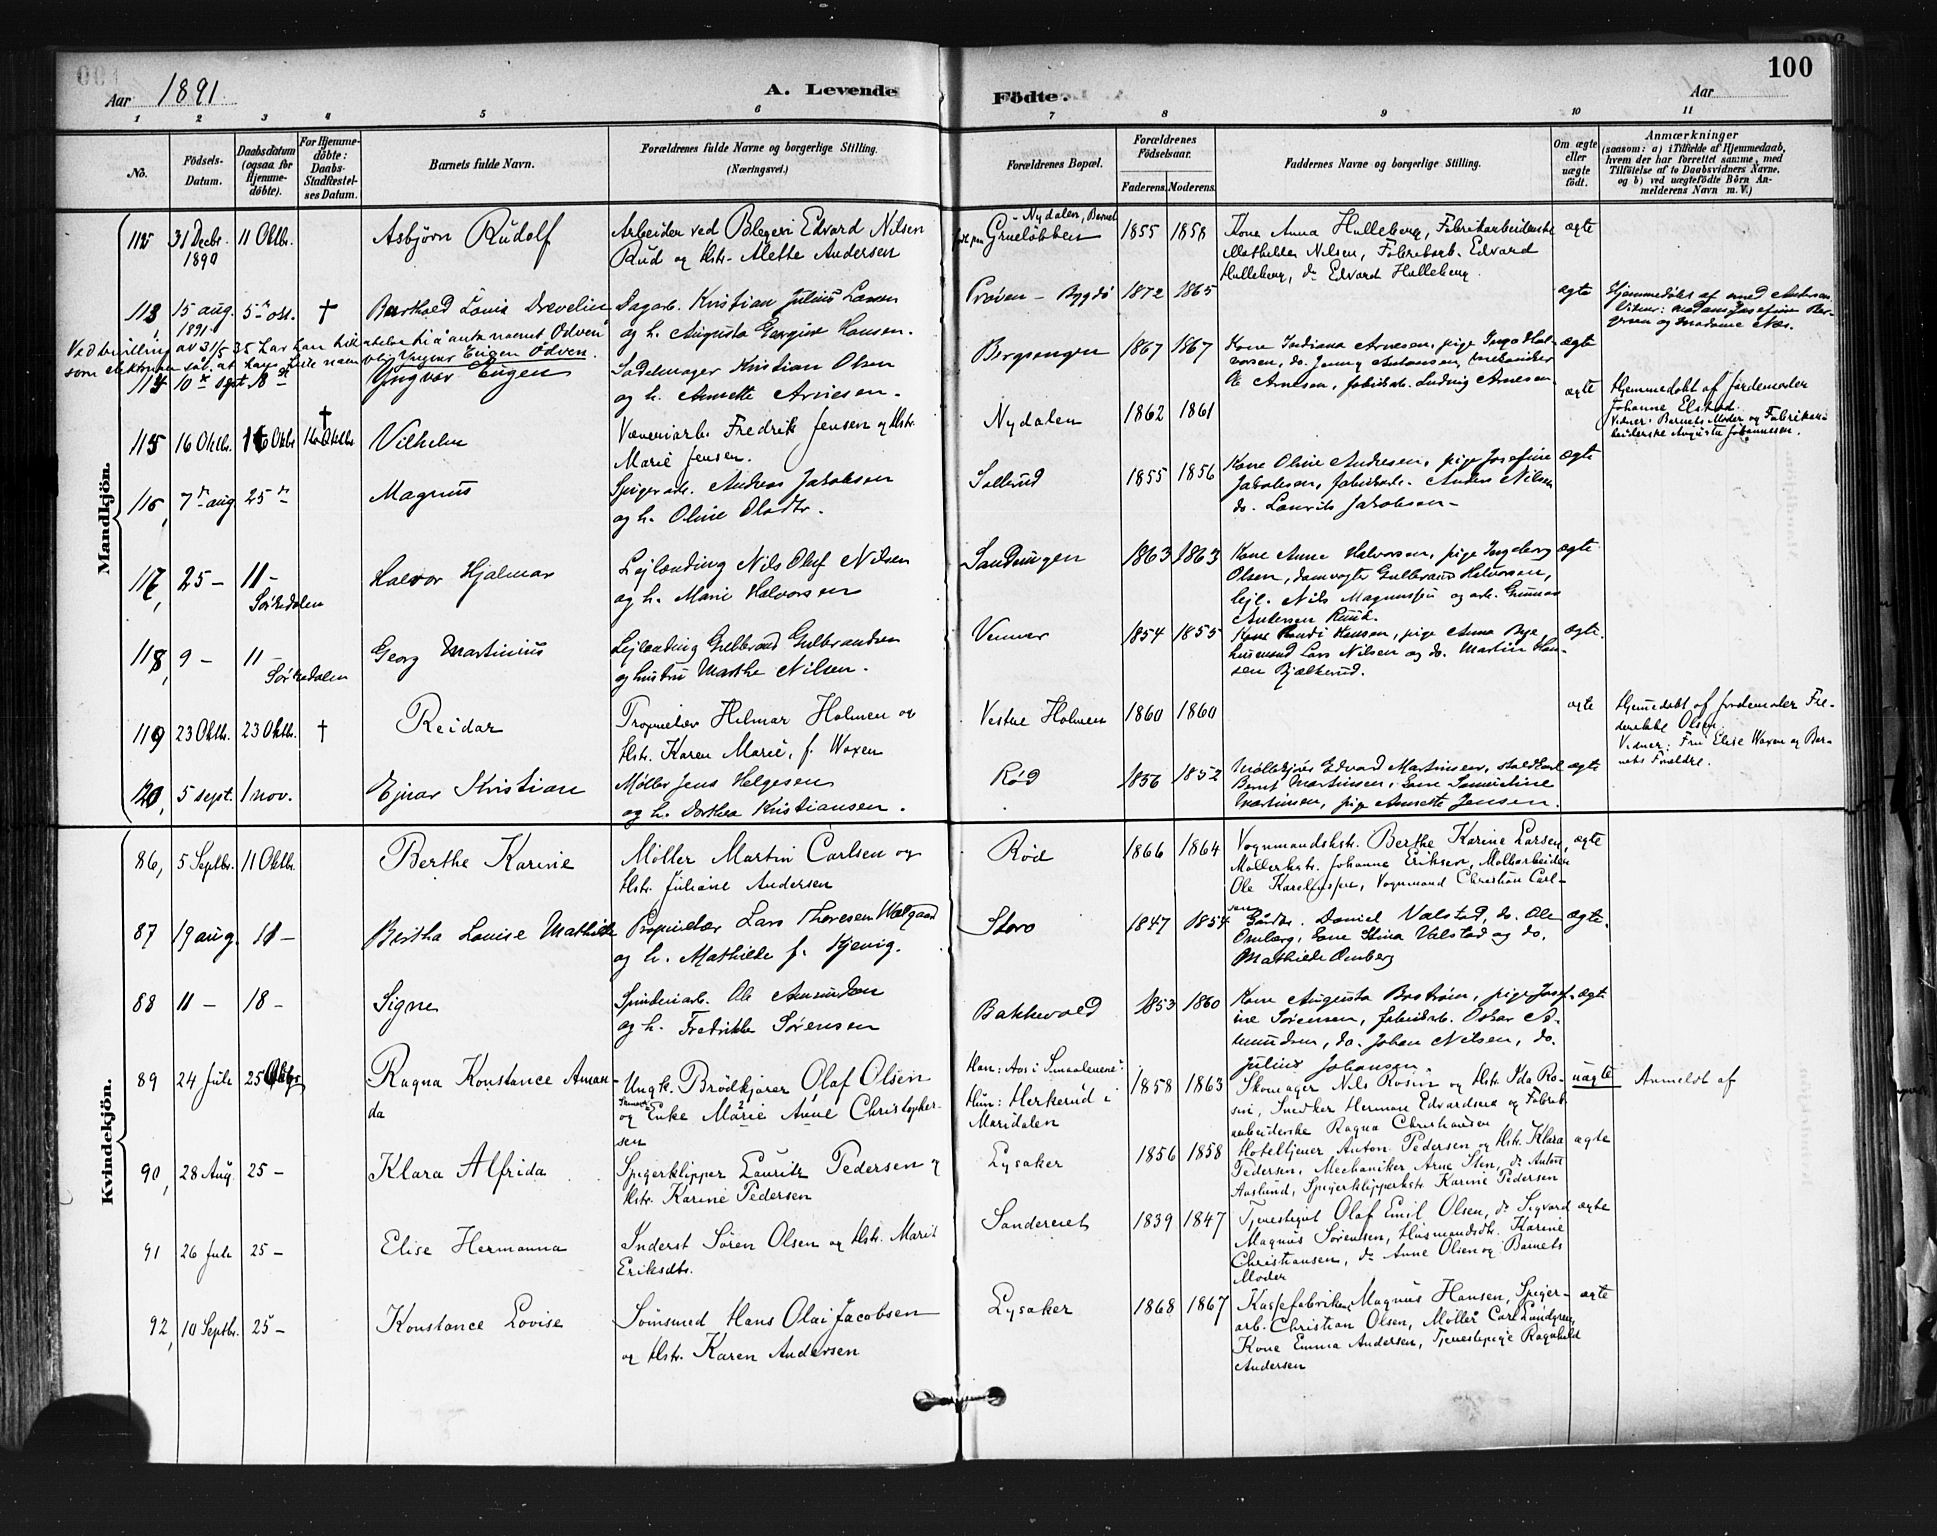 Aar 1891 A. Levende Födte. Aar 100
1 2 3 4 5 6 7 8 9 10 11
No.
Födsels-Datum.
Daabsdatum (ogsaa for Hjemme-döbte).
For Hjemme-döbte: Daabs-Stadfæstel-ses Datum.
Barnets fulde Navn.
Forældrenes fulde Navne og borgerlige Stilling. (Næringsvei.)
Forældrenes Bopæl.
Forældrenes Födselsaar.
Faderens. Moderens.
Faddernes Navne og borgerlige Stilling.
Om ægte eller uægte födt.
Anmærkninger
(saasom: a) i Tilfælde af Hjemmedaab,
hvem der har forrettet samme, med
Tilföielse af to Daabsvidners Navne,
og b) ved uægtefödte Börn An-
melderens Navn m. V.)
Mandkjön.
112 31 Decbr. 1890 11 Oktbr. Asbjörn Rudolf
Arbeider ved Blegeri Edvard Nilsen
Rud og Hstr. Alette Andersen
Nydalen, Barnet
Grueløkken 1855 1858
Kone Anna Hulleberg, Fabrikarbeiderske
Mathilde Nilsen, Fabrikarb. Edvard
Hulleberg, do Edvard Hulleberg
ægte
113, 15 aug. 1891 5 okt. † Barthold Louis Drevelin
Dagarb. Kristian Julius Larsen
og h. Augusta Georgine Hansen.
Prøven - Bygdø 1872 1865 ægte
Hjemmedøbt af smed Andersen
Vidner: madam Josefine
og madame Næs.
Ved bevilling av 31/5 35 har han
anta navnet Odven
som
Yngvar Eugen Odven.
114 10 sept. 18 Yngvar Eugen
Sadelmager Kristian Olsen
og h. Annette Arnesen.
Bergsengen 1867 1867
Kone Indiana Arnesen, pige Inga Hal-
vorsen, do. Jenny Antonsen, mekaniker
Ole Arnesen, fabrikarb. Ludvig Arnesen.
ægte
115 16 Oktbr. 16 Oktbr. † Vilhelm
Væveriarb. Fredrik Jensen og Hstr.
Marie Jensen.
Nydalen 1862 1861 ægte
Hjemmedøbt af Jordemoder
Johanne Elstad.
Vidner: Barnets Moder og Fabrikar-
beiderske Augusta Johannesen.
116, 7 aug. 25 Magnus
Spigerarb. Andreas Jakobsen
og h. Oline Olsdtr.
Sollerud 1855 1856
Kone Oline Andresen, pige Josefine
Jakobsen, fabrikarb. Anders Nilsen
do. Laurits Jakobsen
ægte
117, 25 - 11 - Sørkedalen Halvor Hjalmar
Lejlænding Nils Oluf Nilsen
og h. Marie Halvorsen
Sandungen 1863 1863
Kone Anne Halvorsen, pige Ingeborg
Olsen, damvogter Gulbrand Halvorsen,
lejl. Nils Magnussen og arb. Gunnar
Andersen Rund.
ægte
118, 9 - 11 - Sørkedalen Georg Martinius
Lejlænding Gulbrand Gulbrandsen
og hustru Marthe Nilsen.
Venner 1854 1855
Kone Randi Hansen, pige Anna Bye,
husmand Lars Nilsen og do. Martin Han-
sen Bjælkerud.
ægte.
119 23 Oktbr. 23 Oktbr. † Reidar
Proprietær Hilmar Holmen og
Hstr. Karen Marie, f. Waxen
Vestre Holmen 1860 1860 ægte
Hjemmedøbt af Jordemoder Fre-
derikke Olsen.
Vidner: Fru Elise Waxen og Bar-
nets Forældre.
120, 5 sept. 1 nov. Ejnar Kristian
Møller Jens Helgesen
og h. Dorthea Kristiansen.
Rød 1856 1852
Møllekjører Edvard Martinsen, staldkarl
Bernt Martinsen, kone Samueline
Martinsen, pige Annette Jensen.
ægte
Kvindekjön.
86, 5 Septbr. 11 Oktbr. Berthe Karine
Møller Martin Carlsen og
Hstr. Juliane Andersen
Rød 1866 1864
Vognmandshstr. Berthe Karine Larsen,
Møllerhstr. Johanne Eriksen, Møllearbeider
Ole Karelinssen, Vognmand Christian Carl-
sen
ægte
87 19 aug. 11 - Bertha Louise Mathilde
Proprietær Lars Theresen Walgaard
og h. Mathilde f. Kjenig.
Storo 1847 1854
Gårdbr. Daniel Valstad, do. Ole
Omberg, kone Stina Valstad og do.
Mathilde Omberg
ægte.
88 11 - 18 - Signe
Spinderiarb. Ole Amundsen
og h. Fredrikke Sørensen
Bakkevold 1853 1860
Kone Augusta Boström, pige Josef-
ine Sørensen, fabrikarb. Oskar A-
mundsen, do. Johan Nilsen, do.
Julius Johansen.
ægte
89 24 Juli 25 Oktbr. Ragna Konstance Aman-
da
Ungk. Brödkjører Olaf Olsen
og Enke Marie Anne Christopher-
sen
Han: Aas i Smaalenene
Hun: Herkerud i
Maridalen
1858 1863
Skomager Nils Rosin og Hstr. Ida Ro-
sin, Snedker Herman Edvardsen og Fabrik-
arbeiderske Ragna Christiansen
uægte Anmeldt af
90, 28 Aug. 25 - Klara Alfrida
Spigerklipper Lauritz Pedersen og
Hstr. Karine Pedersen
Lysaker 1856 1858
Hoteltjener Anton Pedersen og Hstr. Klara
Pedersen, Mechaniker Arne Sten, do Anton
Aaslund, Spigerklipperhstr. Karine Pedersen
ægte
91 26 Juli 25 - Elise Hermanna
Inderst Sören Olsen og Hstr. Marit
Eriksdtr.
Sandereiet 1839 1847
Tjenestegut Olaf Emil Olsen, do Sigvard
Magnus Sörensen, Husmandsdtr. Karine
Christiansen, do Anne Olsen og Barnets
Moder
ægte
92, 10 Septbr. 25 - Konstance Lovise
Sömsmed Hans Olai Jacobsen
og Hstr. Karen Andersen
Lysaker 1868 1867
Kassefabrikør Magnus Hansen, Spiger-
arb. Christian Olsen, Møller Carl Lundgren,
Kone Emma Andersen, Tjenestepige Ragnhild
Andersen
ægte